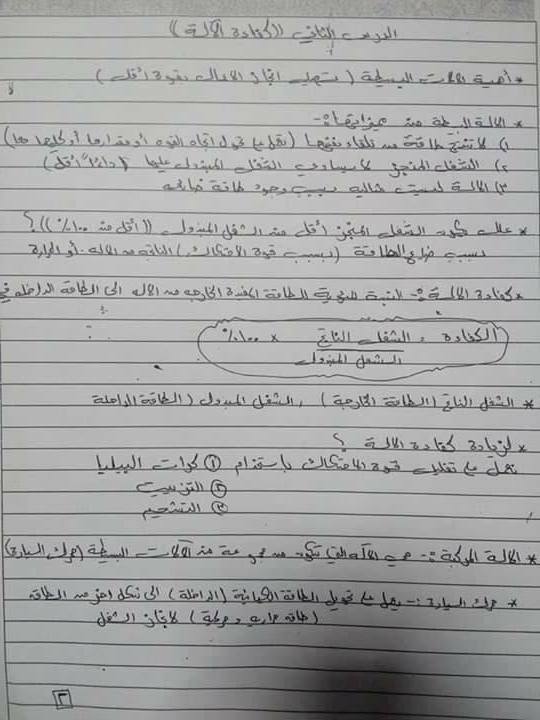 الدرس الثاني ((كفاءة الآلة))
* أهمية الآلات البسيطة (تسهيل انجاز الاعمال بقوة أقل)
* الالة البسيطة من ميزاتها:-
١) لا تنتج طاقة من تلقاء نفسها (تعمل على تحويل اتجاه القوه أو مقدارها أو كليهما)
٢) الشغل المنجز لا يساوي الشغل المبذول عليها (دائماً أقل)
٣) الالة ليست مثاليه بسبب وجود طاقة ضائعه
* علل يكون الشغل المنجز أقل من الشغل المبذول ((أقل من ١٠٠٪))؟
بسبب ضياع الطاقة (بسبب قوة الاحتكاك) الناتجة من الاله أو الحرارة
* كفاءة الالة:- النسبة المئوية للطاقة المفيدة الخارجه من الاله الى الطاقة الداخله في
الكفاءة = الشغل الناتج × ١٠٠٪
الشغل المبذول
* الشغل الناتج (الطاقة الخارجة) , الشغل المبذول (الطاقة الداخلة
* لزيادة كفاءة الالة ؟
نعمل على تقليل قوة الاحتكاك باستخدام ① كرات البيليا
② التزييت
③ التشحيم
* الالة المركبة:- هي الآله التي تتكون من مجموعة من الآلات البسيطة (محرك السيارة)
* محرك السيارة:- يعمل على تحويل الطاقة الكيميائية (الداخلة) الى شكل اخر من الطاقة
(طاقه حراريه و حركية) لانجاز الشغل
٢